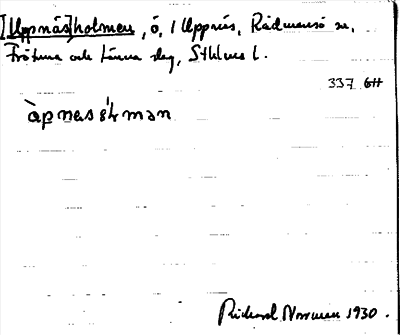 [Uppnäs]holmen, ö, i Uppnäs, Rådmansö sn,
Frötuna och Länna skg, Sthlms l.
337 GH
Rickard Norrman 1930.